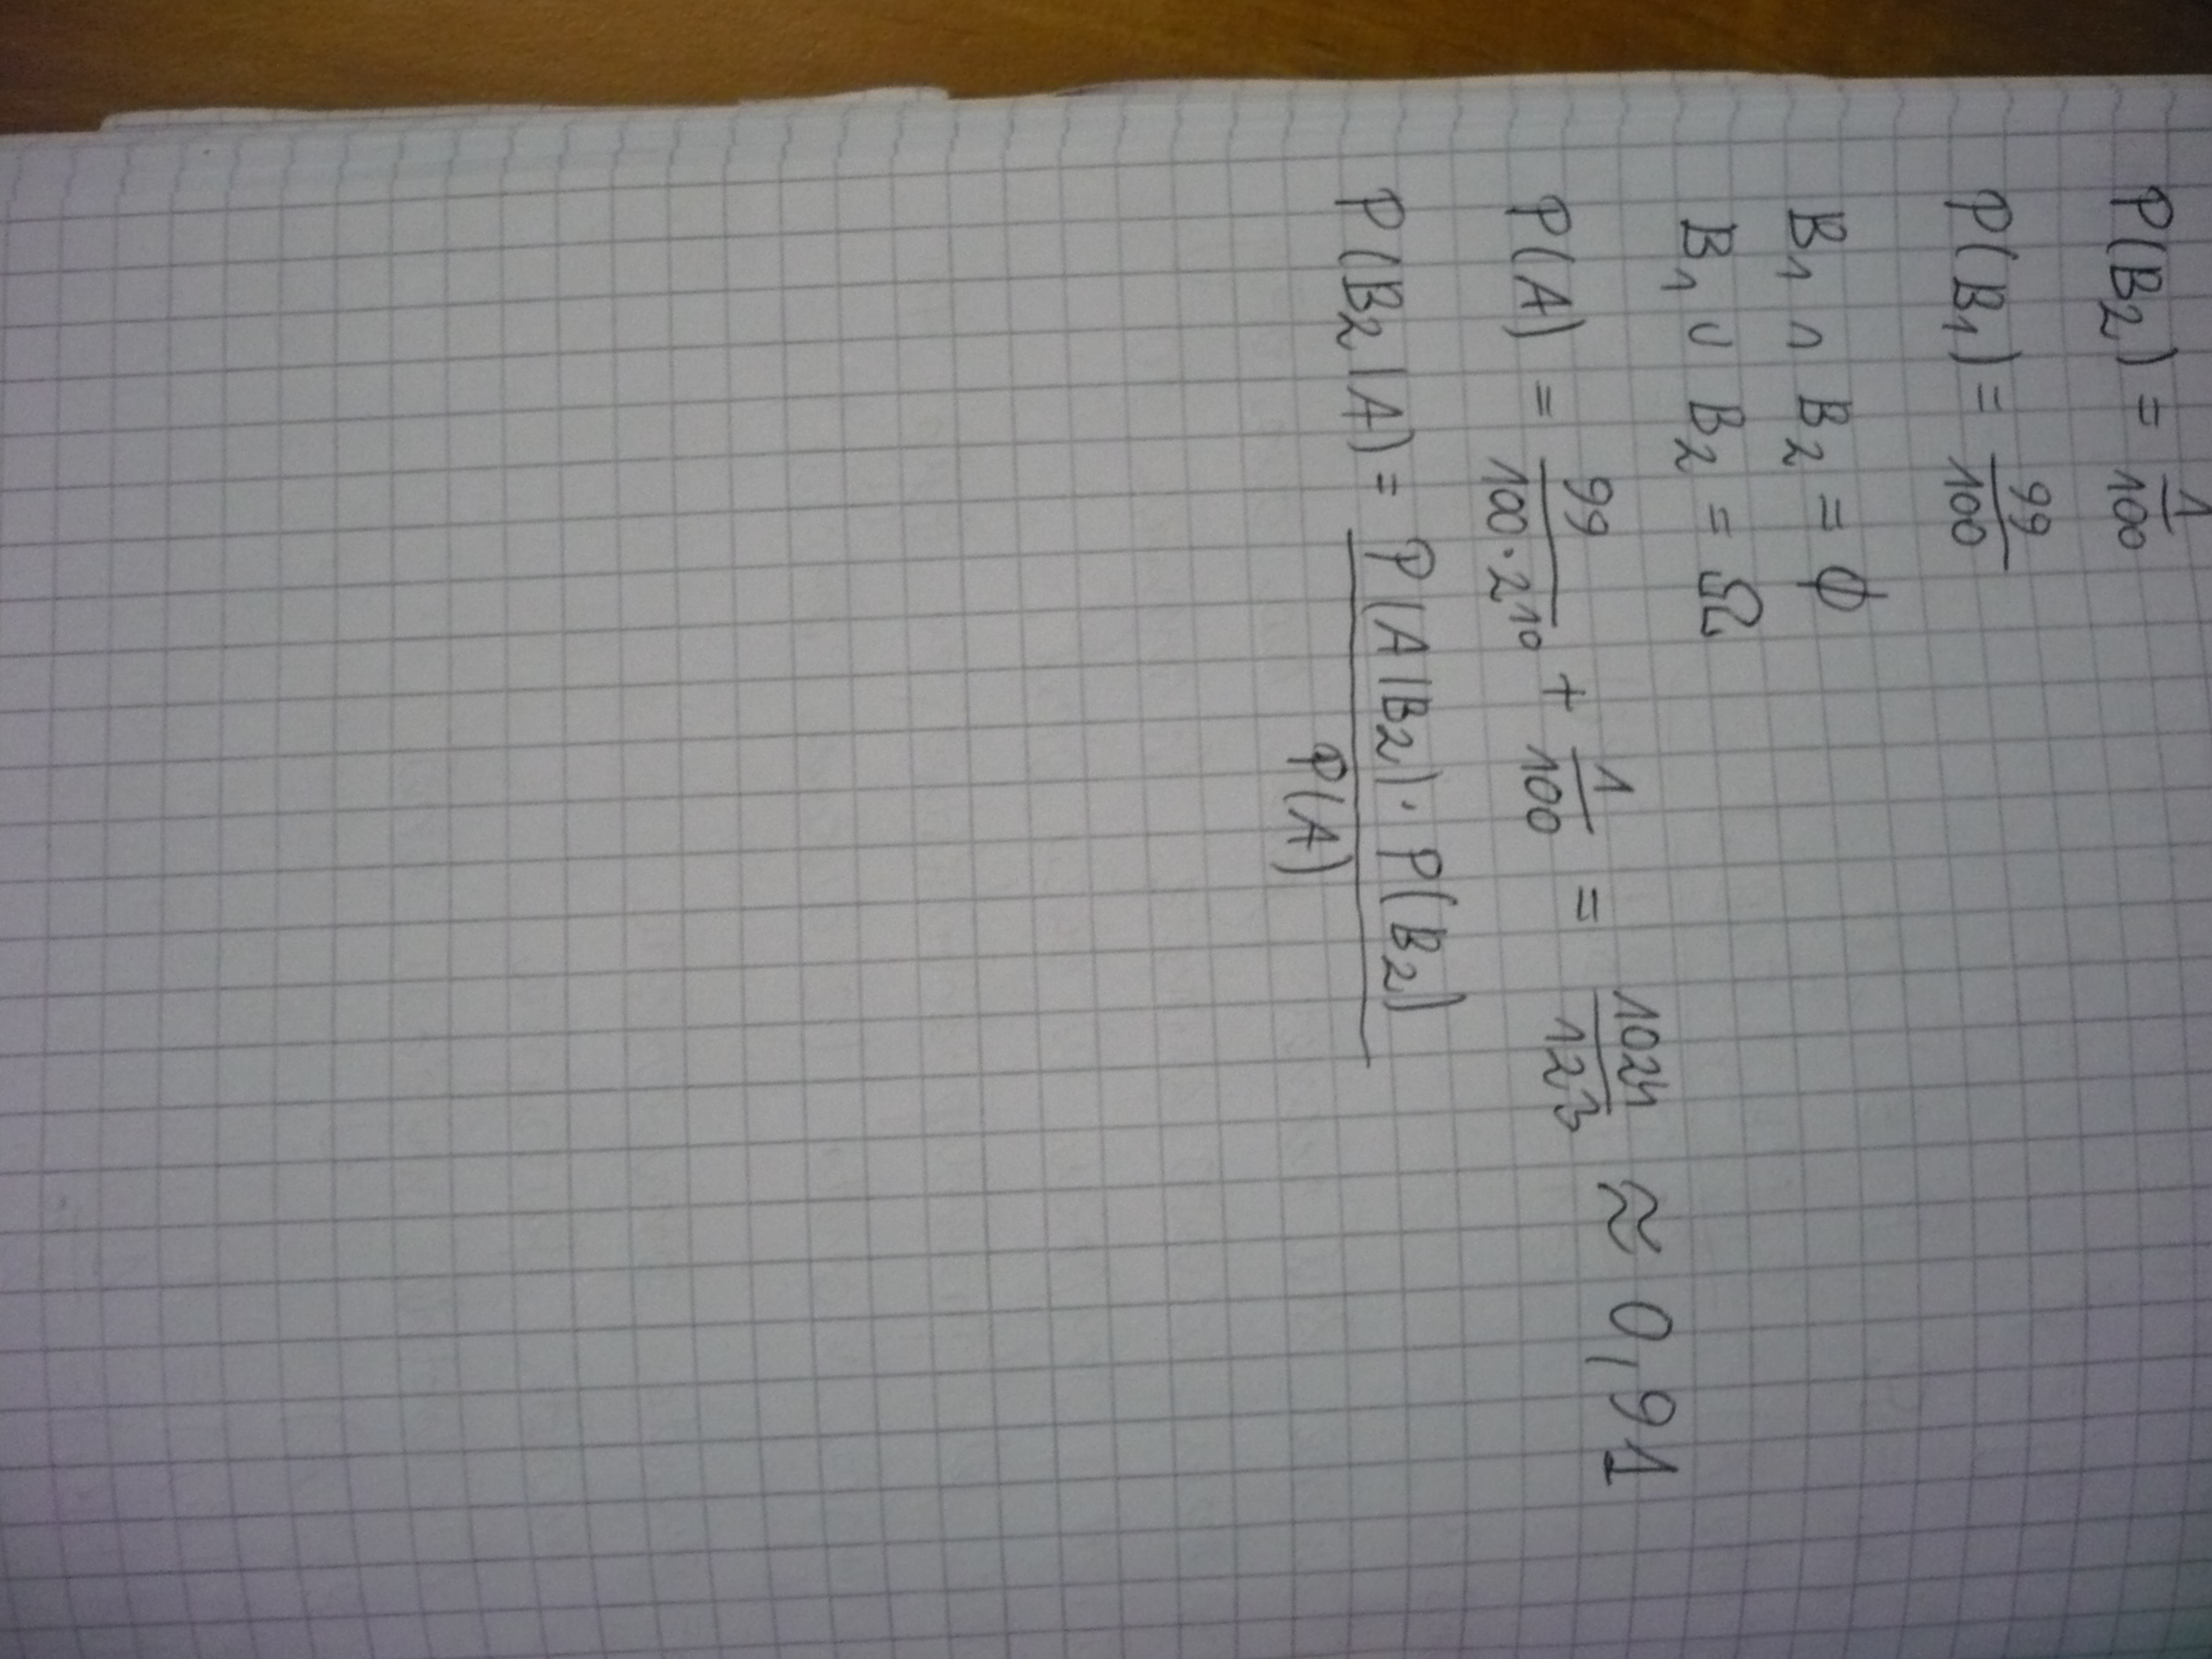 P(B₂) = 1/100
P(B₁) = 99/100
B₁ ∩ B₂ = ∅
B₁ ∪ B₂ = Ω
P(A) = 99/(100·2¹⁰) + 1/100 = 1024/123 ≈ 0,91
P(B₂|A) = P(A|B₂)·P(B₂)/P(A)